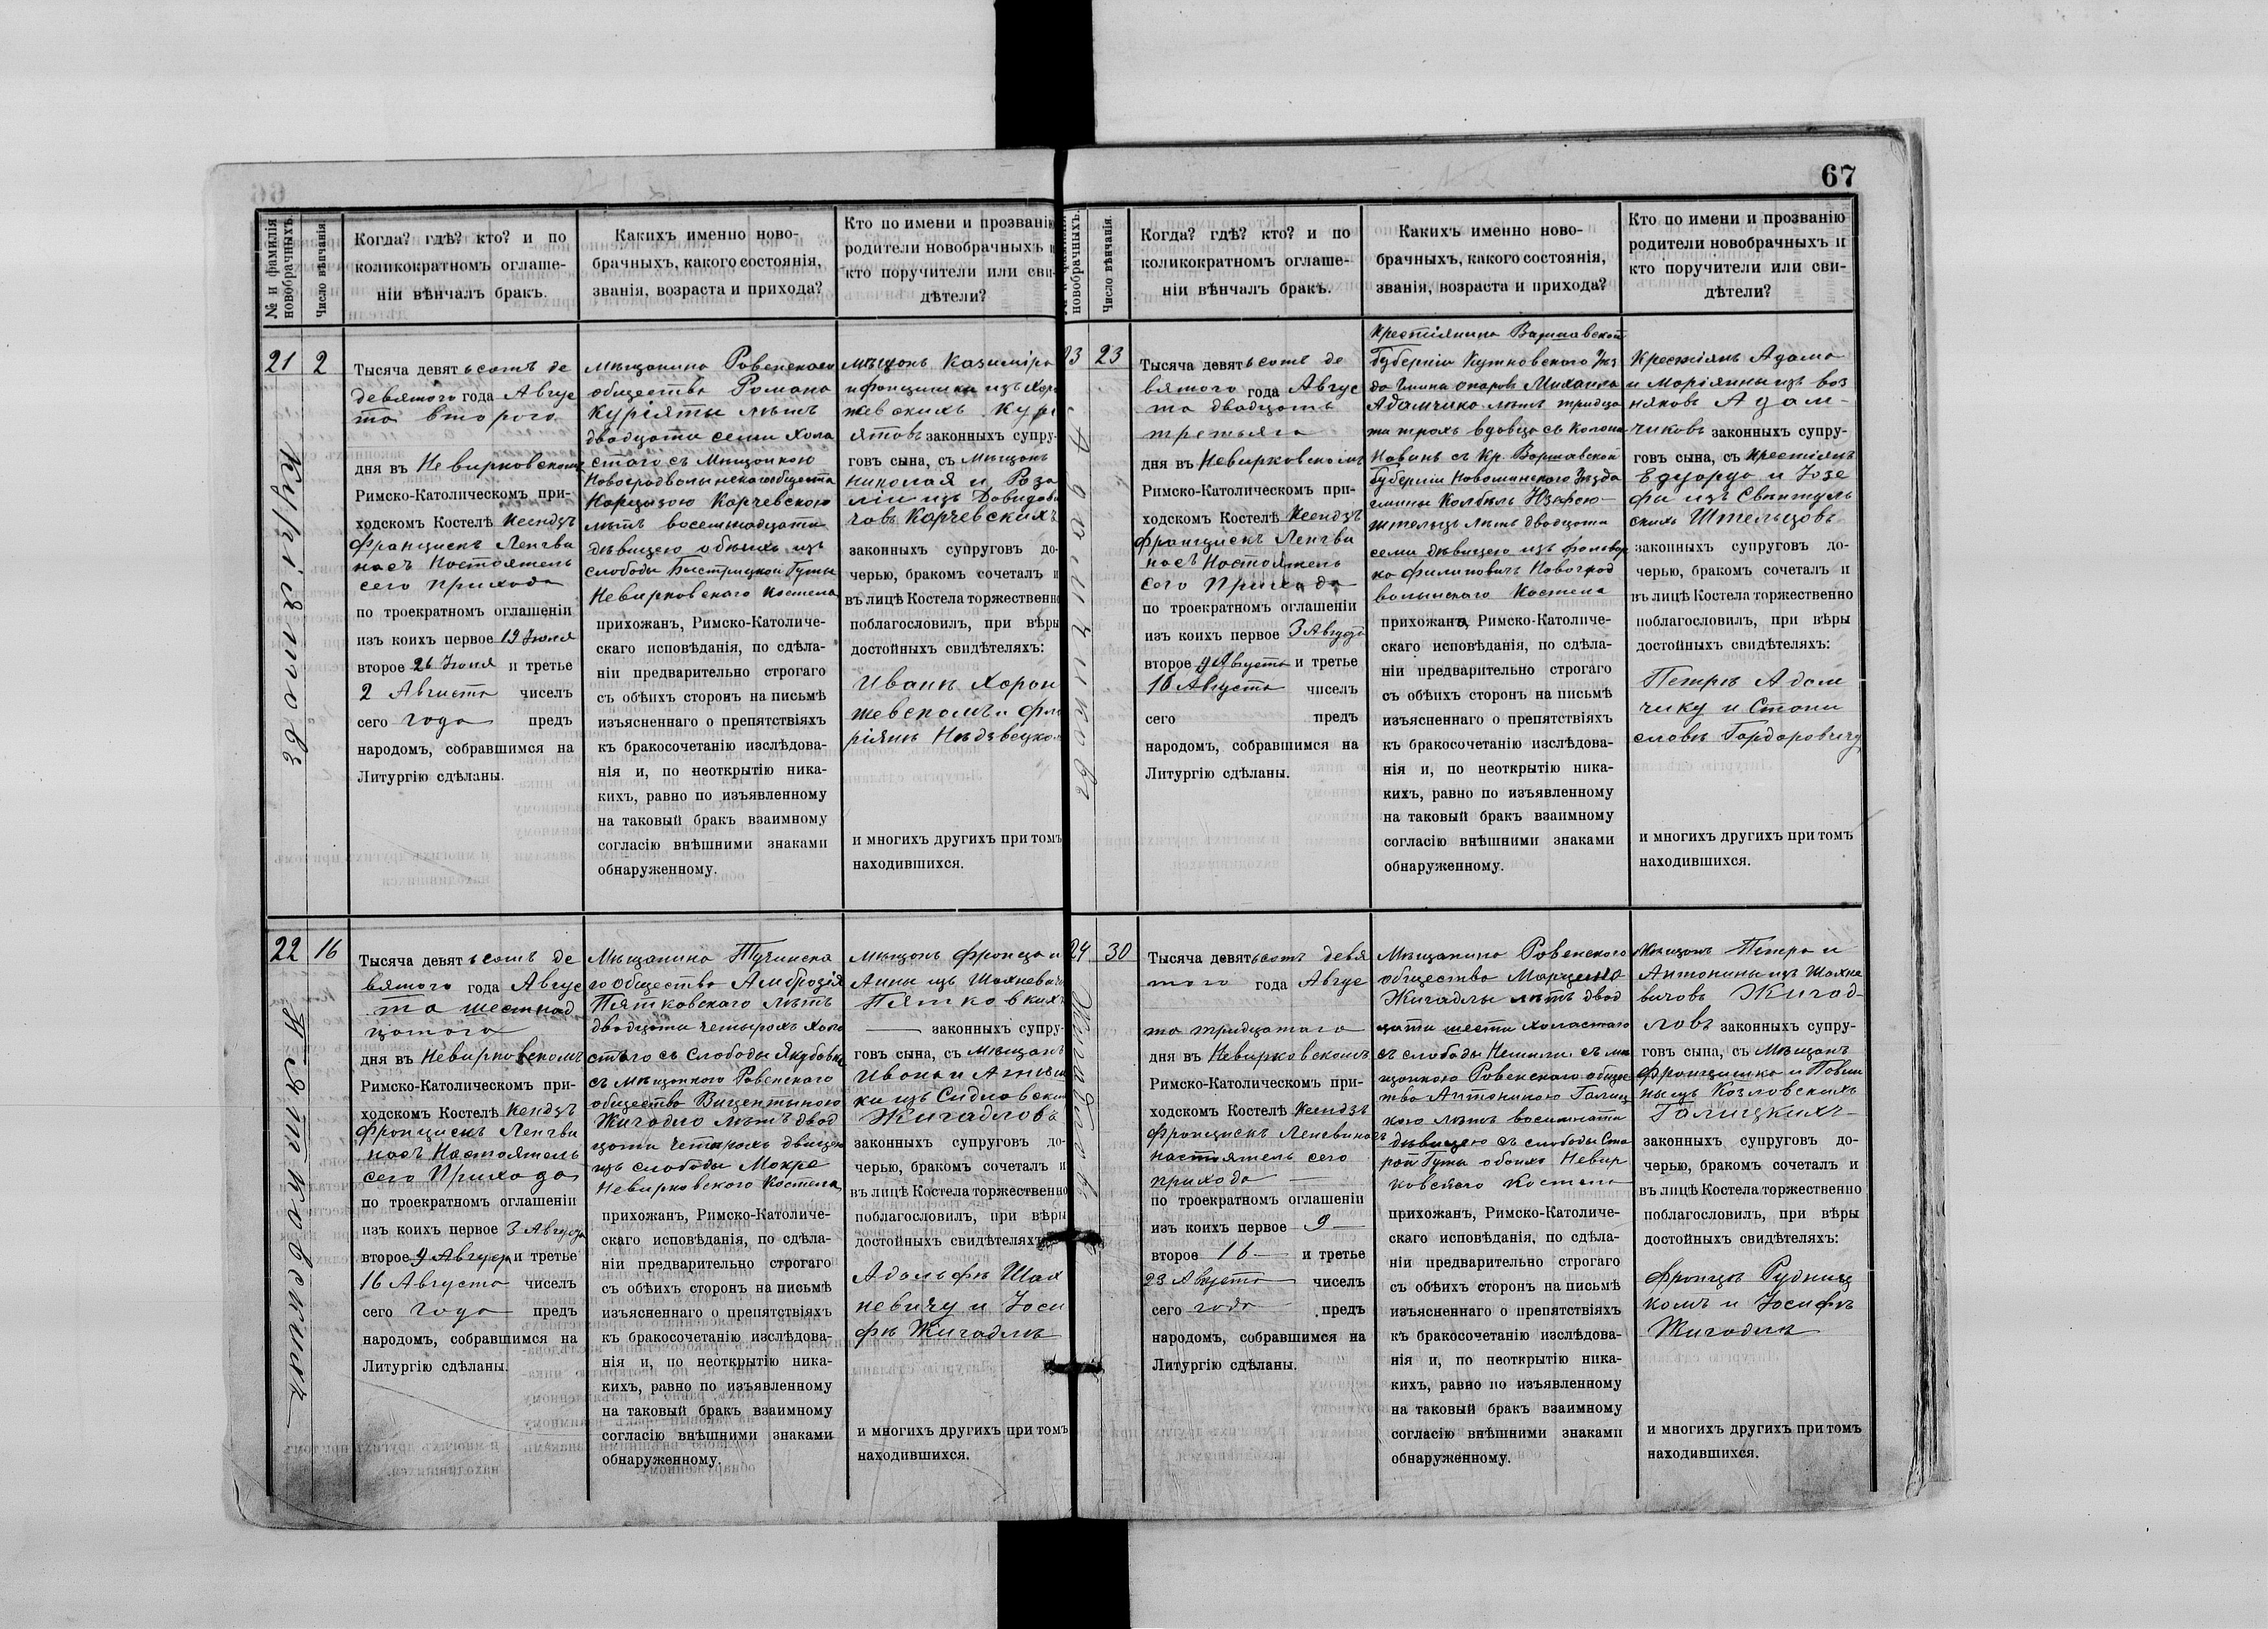 67
№ и фамилія новобрачныхъ.
Число вѣнчанія.
Когда? гдѣ? кто? и по
коликократномъ оглаше-
ніи вѣнчалъ бракъ.
Какихъ именно ново-
брачныхъ, какого состоянія,
званія, возраста и прихода?
Кто по имени и прозванію
родители новобрачныхъ и
кто поручители или сви-
дѣтели?
21
2
Курiятовъ
Тысяча девятьсотъ де
девятого года Авгус
та второго
дня въ Невирковскомъ
Римско-Католическомъ при-
ходскомъ Костелѣ Ксендзъ
Францискъ Ленгви
насъ Настоятель
сего прихода
по троекратномъ оглашеніи
изъ коихъ первое 19 Июля
второе 26 Июля и третье
2 Августа чиселъ
сего года предъ
народомъ, собравшимся на
Литургію сдѣланы.
Мѣщанина Ровенскаго
общества Романа
Куріяты лѣтъ
двадцати семи холо
стого съ Мѣщанкою
Новоградволынскаго общества
Нарцизою Карчевскою
лѣтъ восемнадцати
дѣвицею обоихъ изъ
слободы Быстрицкой Гуты
Невирковского Костела
прихожанъ, Римско-Католиче-
скаго исповѣданія, по сдѣла-
ніи предварительно строгаго
съ обѣихъ сторонъ на письмѣ
изъясненнаго о препятствіяхъ
къ бракосочетанію изслѣдова-
нія и, по неоткрытію ника-
кихъ, равно по изъявленному
на таковый бракъ взаимному
согласію внѣшними знаками
обнаруженному.
Мѣщанъ Казиміра
и Францишки изъ Хорон
жевскихъ Кури
ятовъ законныхъ супру-
говъ сына, съ Мѣщанъ
Николая и Роза
ліи изъ Давидови
човъ Карчевскихъ
законныхъ супруговъ до-
черью, бракомъ сочеталъ и
въ лицѣ Костела торжественно
поблагословилъ, при вѣры
достойныхъ свидѣтеляхъ:
Иванѣ Хорон
жевскомъ и Фло
ріянѣ Нѣдзвецком
и многихъ другихъ при томъ
находившихся.
22
16
Пятковскихъ
Тысяча девятьсотъ де
вятого года Авгус
та шестнад
цатого
дня въ Невирковскомъ
Римско-Католическомъ при-
ходскомъ Костелѣ Ксендзъ
Францискъ Ленгви
насъ Настоятель
сего Прихода
по троекратномъ оглашеніи
изъ коихъ первое 3 Августа
второе 9 Августа и третье
16 Августа чиселъ
сего года предъ
народомъ, собравшимся на
Литургію сдѣланы.
Мѣщанина Тучинска
го общества Амброзія
Пятковскаго лѣтъ
двадцати четырохъ холо
стого съ Слободы Якубовки
съ мѣщанкою Ровенскаго
общества Вицентыною
Жигадло лѣтъ двад
цати четырохъ дѣвицею
изъ слободы Мокре
Невирковского Костела
прихожанъ, Римско-Католиче-
скаго исповѣданія, по сдѣла-
ніи предварительно строгаго
съ обѣихъ сторонъ на письмѣ
изъясненнаго о препятствіяхъ
къ бракосочетанію изслѣдова-
нія и, по неоткрытію ника-
кихъ, равно по изъявленному
на таковый бракъ взаимному
согласію внѣшними знаками
обнаруженному.
Мѣщанъ Франца и
Анны изъ Шахневичо
Пятковкихъ
законныхъ супру-
говъ сына, съ Мѣщанъ
Ивана и
изъ
Жигадловъ
законныхъ супруговъ до-
черью, бракомъ сочеталъ и
въ лицѣ Костела торжественно
поблагословилъ, при вѣры
достойныхъ свидѣтеляхъ
Адольфѣ Шах
невичу и Іоси
фѣ Жигадлѣ
и многихъ другихъ при томъ
находившихся.
новобрачныхъ.
Число вѣнчанія.
Когда? гдѣ? кто? и по
коликократномъ оглаше-
ніи вѣнчалъ бракъ.
Какихъ именно ново-
брачныхъ, какого состоянія,
званія, возраста и прихода?
Кто по имени и прозванію
родители новобрачныхъ и
кто поручители или сви-
дѣтели?
23
23
Адамчиковъ
Тысяча девятьсотъ де
вятого года Авгус
та двадцать
третьяго
дня въ Невирковскомъ
Римско-Католическомъ при-
ходскомъ Костелѣ Ксендзъ
Францискъ Ленгви
насъ Настоятель
сего Прихода
по троекратномъ оглашеніи
изъ коихъ первое 3 Августа
второе 9 Августа и третье
16 Августа чиселъ
сего предъ
народомъ, собравшимся на
Литургію сдѣланы.
Крестіянина Варшавской
Губерніи Кутновского Уѣз
да Гмина Михаила
Адамчика лѣтъ тридца
ти трохъ вдовца съ Колоніи
съ Кр. Варшавской
Губерніи Новоминскаго Уѣзда
гмины Колбѣль Юзефою
Штельцъ лѣтъ двадцати
семи дѣвицею изъ фольвар
ка Филиповичъ Новоград
волынского Костела
прихожанъ, Римско-Католиче-
скаго исповѣданія, по сдѣла-
ніи предварительно строгаго
съ обѣихъ сторонъ на письмѣ
изъясненнаго о препятствіяхъ
къ бракосочетанію изслѣдова-
нія и, по неоткрытію ника-
кихъ, равно по изъявленному
на таковый бракъ взаимному
согласію внѣшними знаками
обнаруженному.
Крестіянъ Адама
и Маріянны изъ Воз
няковъ Адам-
чиковъ законныхъ супру-
говъ сына, съ Крестіянъ
Едуарда и Іозе
фи изъ
Штельцовъ
законныхъ супруговъ до-
черью, бракомъ сочеталъ и
въ лицѣ Костела торжественно
поблагословилъ, при вѣры
достойныхъ свидѣтеляхъ:
Петрѣ Адам
чику и Стани
славѣ Гардаровичу
и многихъ другихъ при томъ
находившихся.
24
30
Жигадловъ
Тысяча девятьсотъ девя
того года Авгус
та тридцатаго
дня въ Невирковскомъ
Римско-Католическомъ при-
ходскомъ Костелѣ Ксендзъ
Францискъ Ленгвинасъ
настоятель сего
прихода
по троекратномъ оглашеніи
изъ коихъ первое 9
второе 16 и третье
23 Августа чиселъ
сего года предъ
народомъ, собравшимся на
Литургію сдѣланы.
Мѣщанина Ровенского
общества Марцела
Жигадлы лѣтъ двад
цати шести холастаго
съ слободы съ мѣ
щанкою Ровенскаго общес
тва Антониною Галиц
кою лѣтъ восемнати
дѣвицею съ слободы Ста
рой Гуты обоихъ Невир
ковского Костела
прихожанъ, Римско-Католиче-
скаго исповѣданія, по сдѣла-
ніи предварительно строгаго
съ обѣихъ сторонъ на письмѣ
изъясненнаго о препятствіяхъ
къ бракосочетанію изслѣдова-
нія и, по неоткрытію ника-
кихъ, равно по изъявленному
на таковый бракъ взаимному
согласію внѣшними знаками
обнаруженному.
Мѣщанъ Петра и
Антонины изъ Шахне
вичовъ Жигад-
ловъ законныхъ супру-
говъ сына, съ Мѣщанъ
Францишка и Павли
ны изъ Козловскихъ
Галицкихъ
законныхъ супруговъ до-
черью, бракомъ сочеталъ и
въ лицѣ Костела торжественно
поблагословилъ, при вѣры
достойныхъ свидѣтеляхъ:
Францѣ Рудниц
комъ и Іосифѣ
Жигадлѣ
и многихъ другихъ при томъ
находившихся.